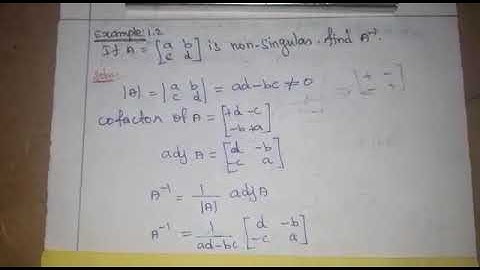 Example: 1.2
If A = [a b c d] is non-singular. find A⁻¹
Soln:
|A| = |a b c d| = ad-bc ≠ 0
cofactor of A = [+d -c -b +a]
adj A = [d -b -c a]
A⁻¹ = 1/|A| adj A
A⁻¹ = 1/ad-bc [d -b -c a]